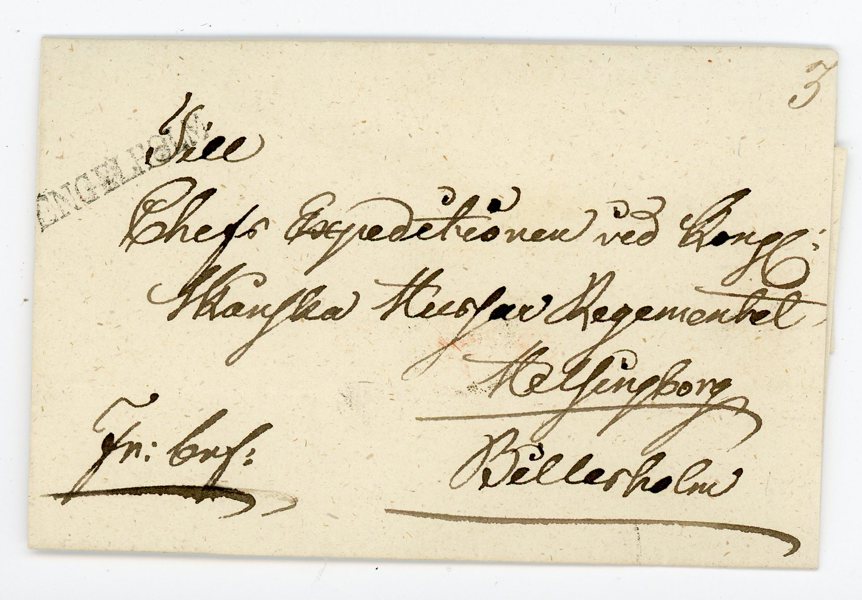 3
ENGELHOLM
Till
Chefs Expeditionen ved Kongl:
Skånska Hussar Regementet
Helsingborg
Fr: brf:
Billesholm